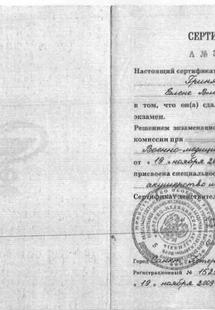 СЕРТИ
А №
Настоящий сертифика
Елене
в том, что он(а) сда
экзамен.
Решением экзаменацион
комиссии при
Военно-медици
от "19" ноября 20
присвоена специальнос
акушерство и
Сертификат действителе
Город Санкт-Петер
Регистрационный № 152
"19" ноября 2009